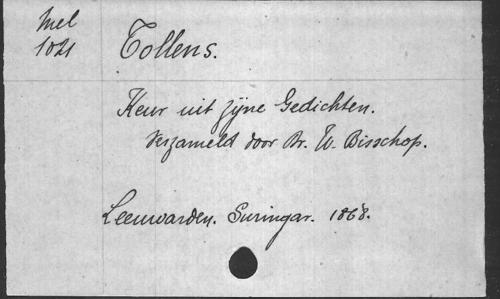 Mel
1021
Tollens.
Keur uit zijne Gedichten.
Verzameld door Dr. W. Bisschop.
Leeuwarden. Suringar. 1868.